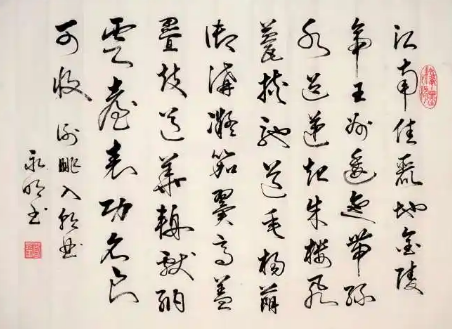 江南佳麗地金陵
帝王州逶迤帶綠
水迢遞起朱樓飛
甍挾馳道垂楊蔭
御溝凝笳翼高蓋
疊鼓送華輈獻納
雲臺表功名良
可收 謝朓入朝曲
永明书